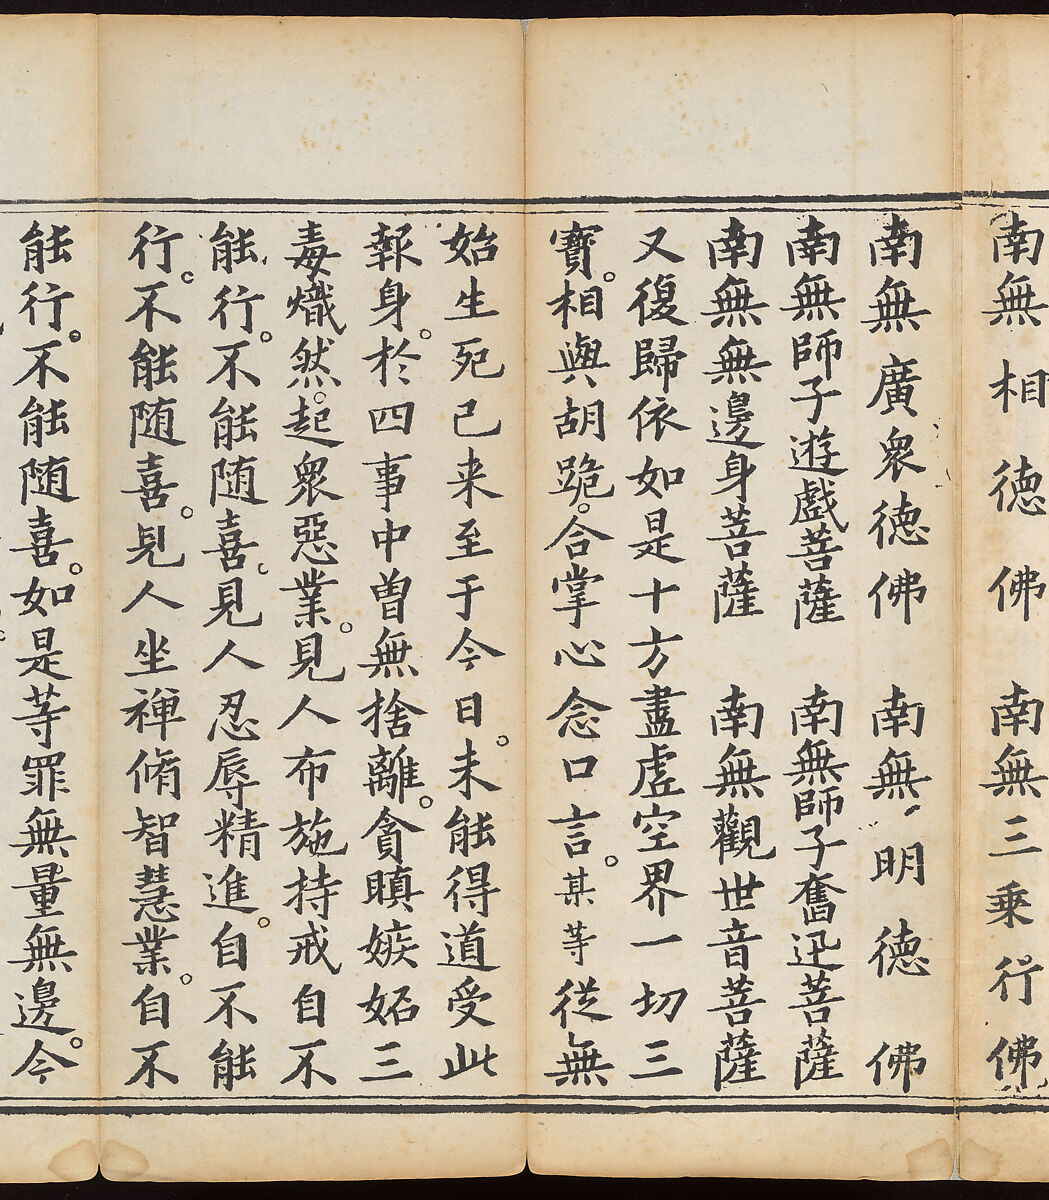 南無相德佛 南無三乗行佛
南無廣衆德佛 南無明德佛
南無師子遊戲菩薩 南無師子奮迅菩薩
南無無邊身菩薩 南無觀世音菩薩
又復歸依如是十方盡虛空界一切三
寶。相與胡跪。合掌心念口言。某等從無
始生死已来至于今日。未能得道受此
報身。於四事中曽無捨離。貪瞋嫉妬三
毒熾然。起衆惡業。見人布施持戒自不
能行。不能随喜。見人忍辱精進。自不能
行。不能随喜。見人坐禪脩智慧業。自不
能行。不能随喜。如是等罪無量無邊。今